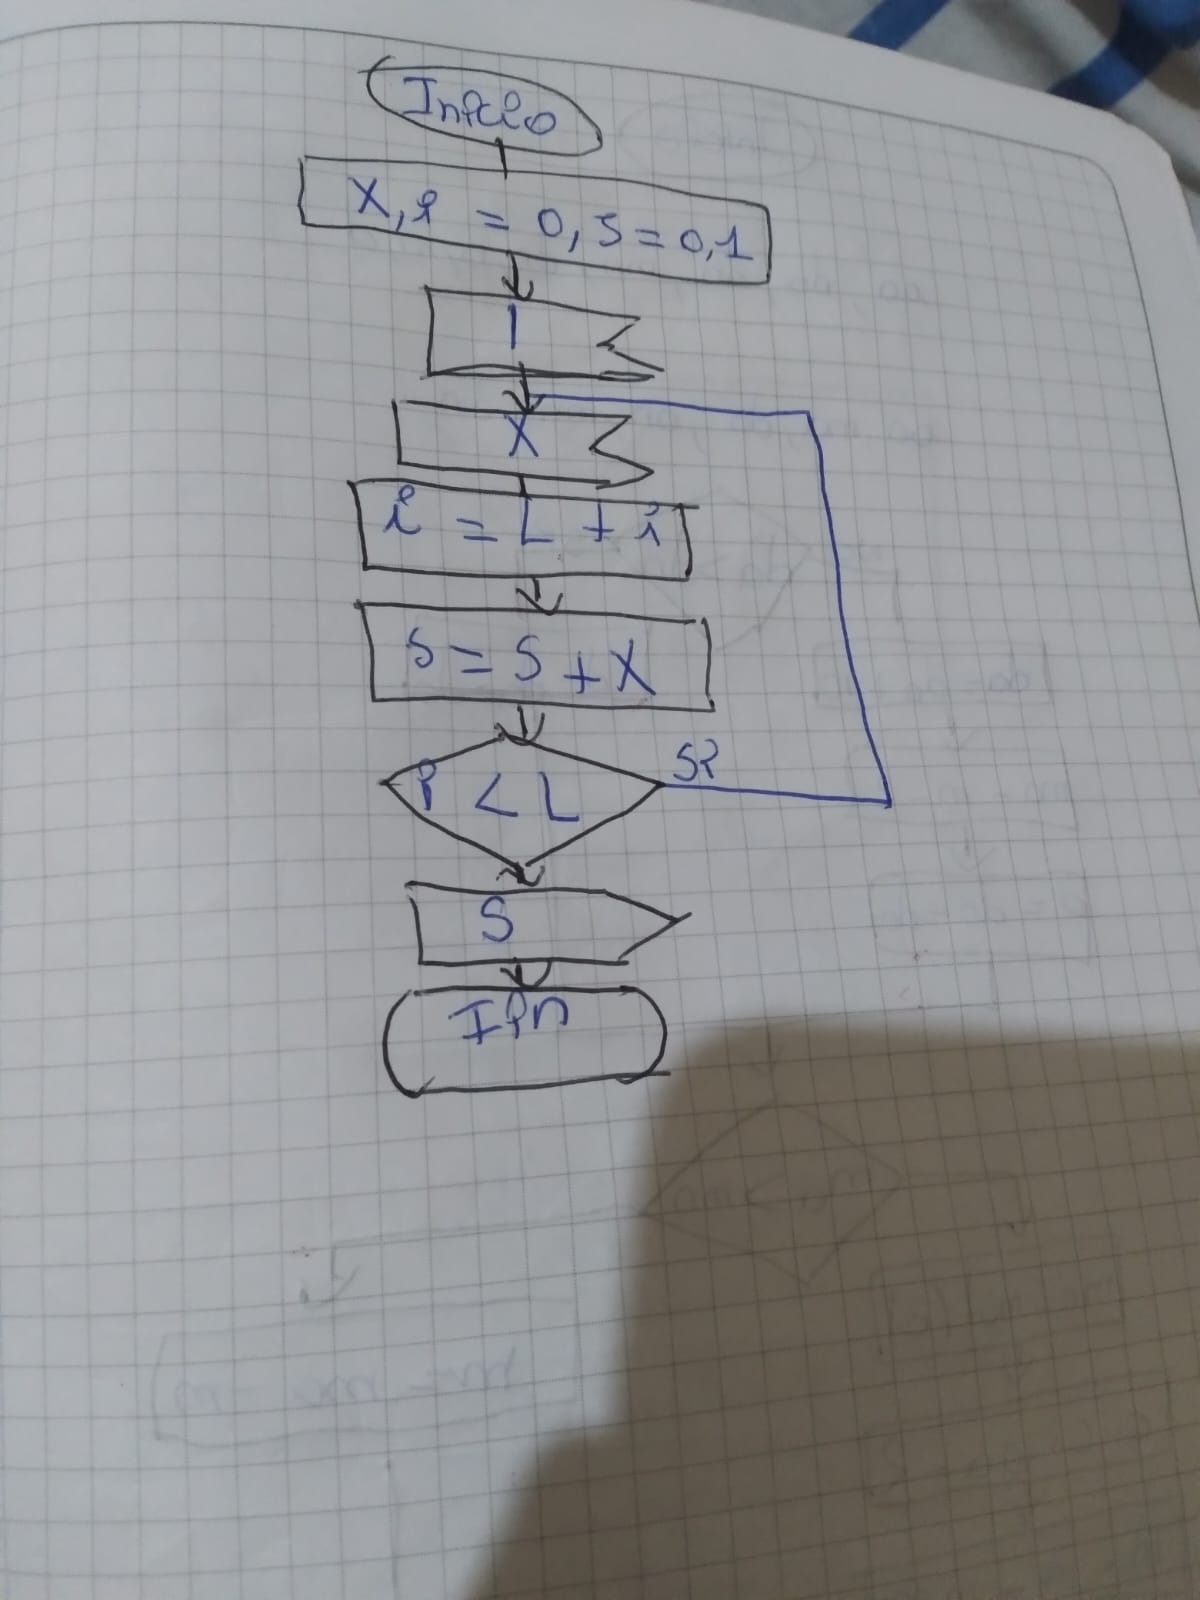 Inicio
X, i = 0, S = 0, 1
l
X
i = L + i
S = S + X
i < L
Si
S
Fin